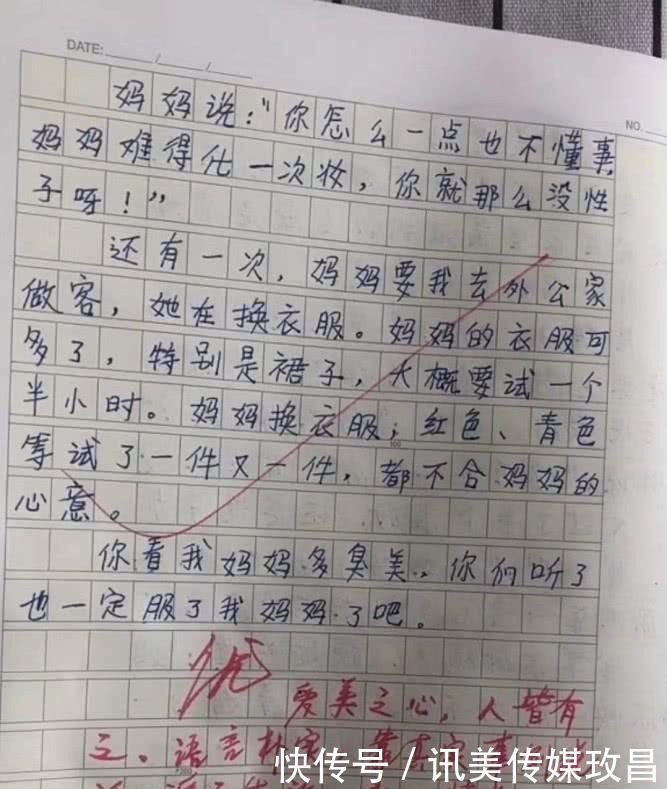 DATE:
NO.
妈妈说:“你怎么一点也不懂事,
妈妈难得化一次妆,你就那么没性
子呀!”
还有一次,妈妈要我去外公家
做客,她在换衣服。妈妈的衣服可
多了,特别是裙子,大概要试一个
半小时。妈妈换衣服,红色、青色
等试了一件又一件,都不合妈妈的
心意。
你看我妈妈多臭美,你们听了
也一定服了我妈妈了吧。
优
爱美之心,人皆有
之、语言朴实
快传号/讯美传媒玫昌